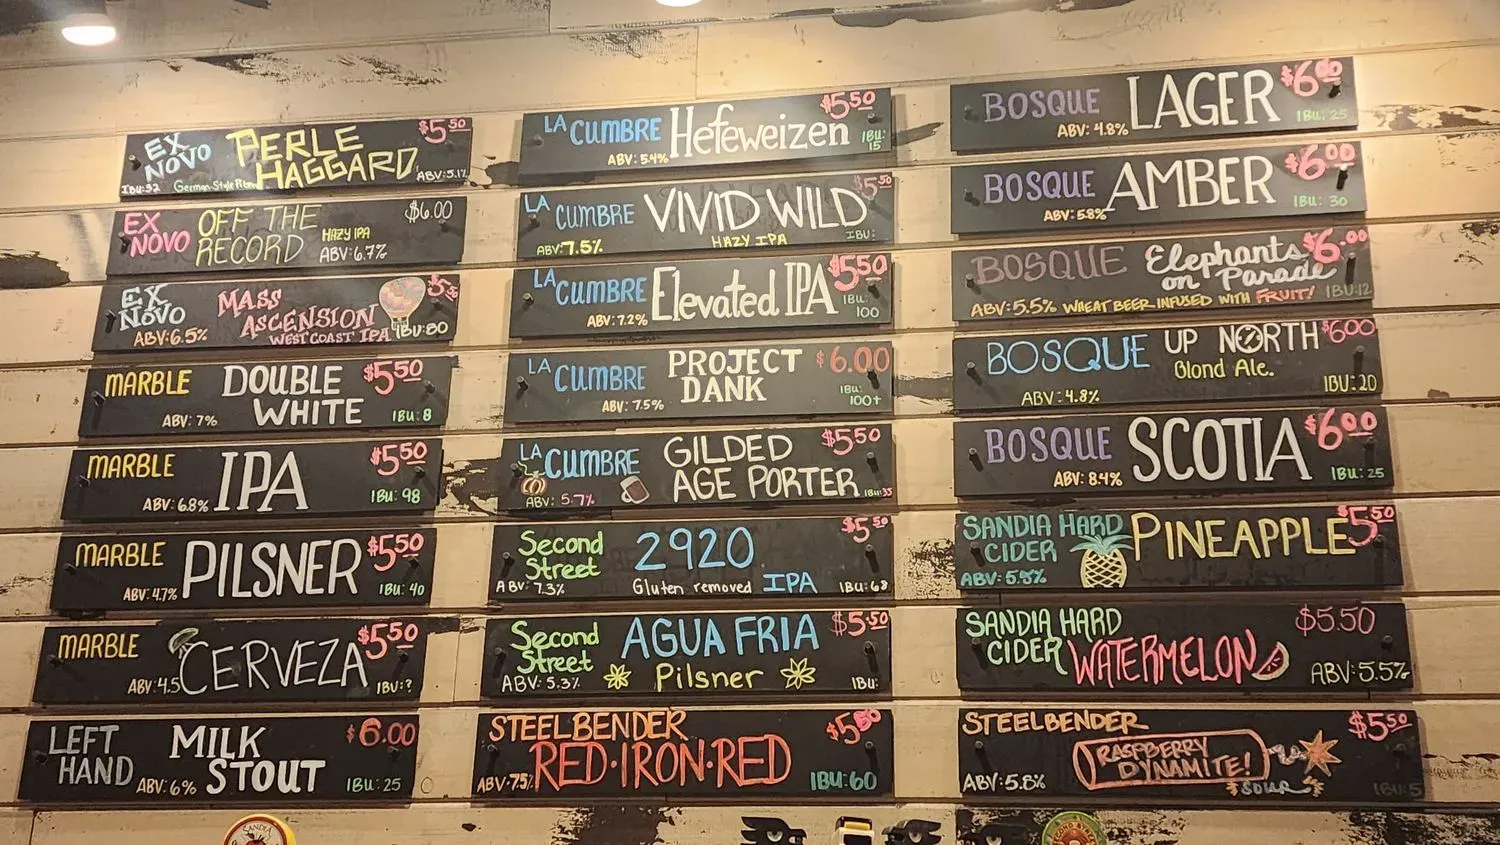 EX NOVO PERLE HAGGARD $5.50
IBU:32 German Style Pilsner ABV:5.1%
EX NOVO OFF THE RECORD HAZY IPA ABV:6.7% $6.00
EX NOVO MASS ASCENSION $5.50
ABV:6.5% WEST COAST IPA IBU:80
MARBLE DOUBLE WHITE $5.50
ABV: 7% IBU: 8
MARBLE IPA $5.50
ABV: 6.8% IBU: 98
MARBLE PILSNER $5.50
ABV: 4.7% IBU: 40
MARBLE CERVEZA $5.50
ABV: 4.5 IBU: ?
LEFT HAND MILK STOUT $6.00
ABV: 6% IBU: 25
LA CUMBRE Hefeweizen $5.50
ABV: 5.4% IBU: 15
LA CUMBRE VIVID WILD $5.50
ABV: 7.5% HAZY IPA IBU:
LA CUMBRE Elevated IPA $5.50
ABV: 7.2% IBU: 100
LA CUMBRE PROJECT DANK $6.00
ABV: 7.5% IBU: 100+
LA CUMBRE GILDED AGE PORTER $5.50
ABV: 5.7% IBU:35
Second Street 2920 $5.50
ABV: 7.3% Gluten removed IPA IBU: 68
Second Street AGUA FRIA $5.50
ABV: 5.3% Pilsner IBU:
STEELBENDER RED·IRON·RED
ABV·7.5% IBU: 60
BOSQUE LAGER $6.00
ABV: 4.8% IBU: 25
BOSQUE AMBER $6.00
ABV: 5.8% IBU: 30
BOSQUE Elephants on Parade $6.00
ABV: 5.5% WHEAT BEER INFUSED WITH FRUIT! IBU:12
BOSQUE UP NORTH $6.00
Blond Ale.
ABV: 4.8% IBU: 20
BOSQUE SCOTIA $6.00
ABV: 8.4% IBU: 25
SANDIA HARD CIDER PINEAPPLE $5.50
ABV: 5.5%
SANDIA HARD CIDER WATERMELON $5.50
ABV: 5.5%
STEELBENDER $5.50
RASPBERRY DYNAMITE!
ABV: 5.8% SOUR IBU: 5
SANDIA